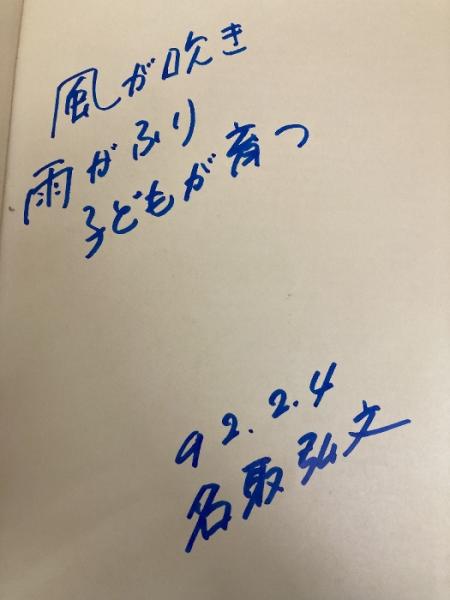 風が吹き
雨がふり
子どもが育つ
92.2.4
名取弘文